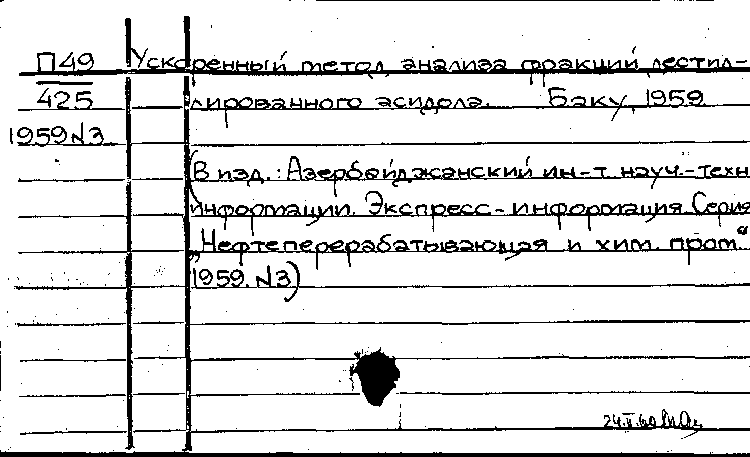 П49 Ускоренный метод анализа фракций дестил-
425 лированного асидола. Баку, 1959
1959 N3
(В изд.: Азербайджанский ин-т науч.-техн
информации. Экспресс-информация. Серия
„Нефтеперерабатывающая и хим. пром."
1959. N3)